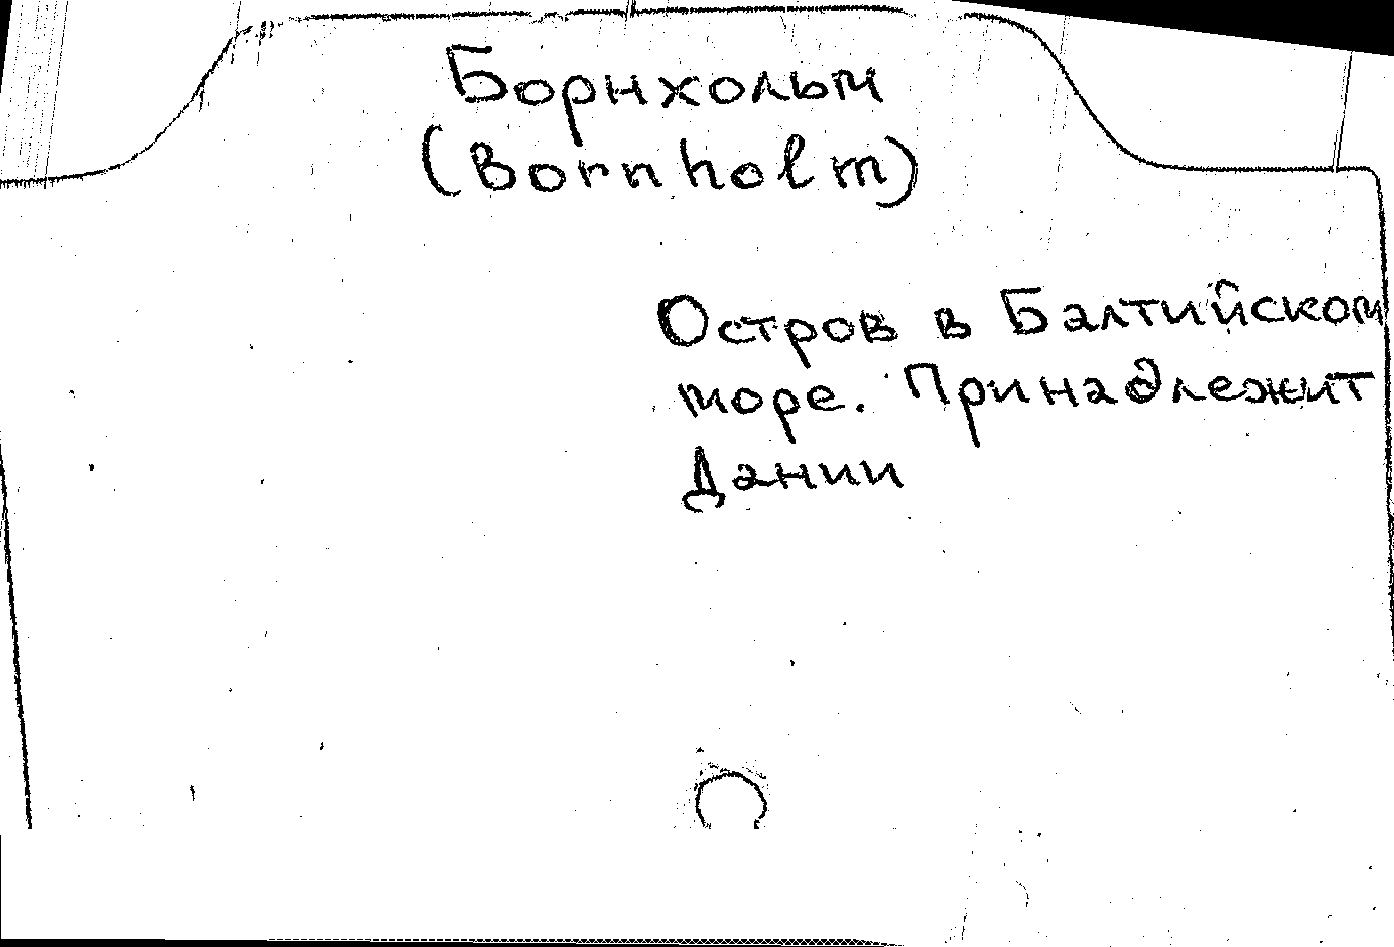 Борнхольм
(Bornholm)
Остров в Балтийском
море. Принадлежит
Дании